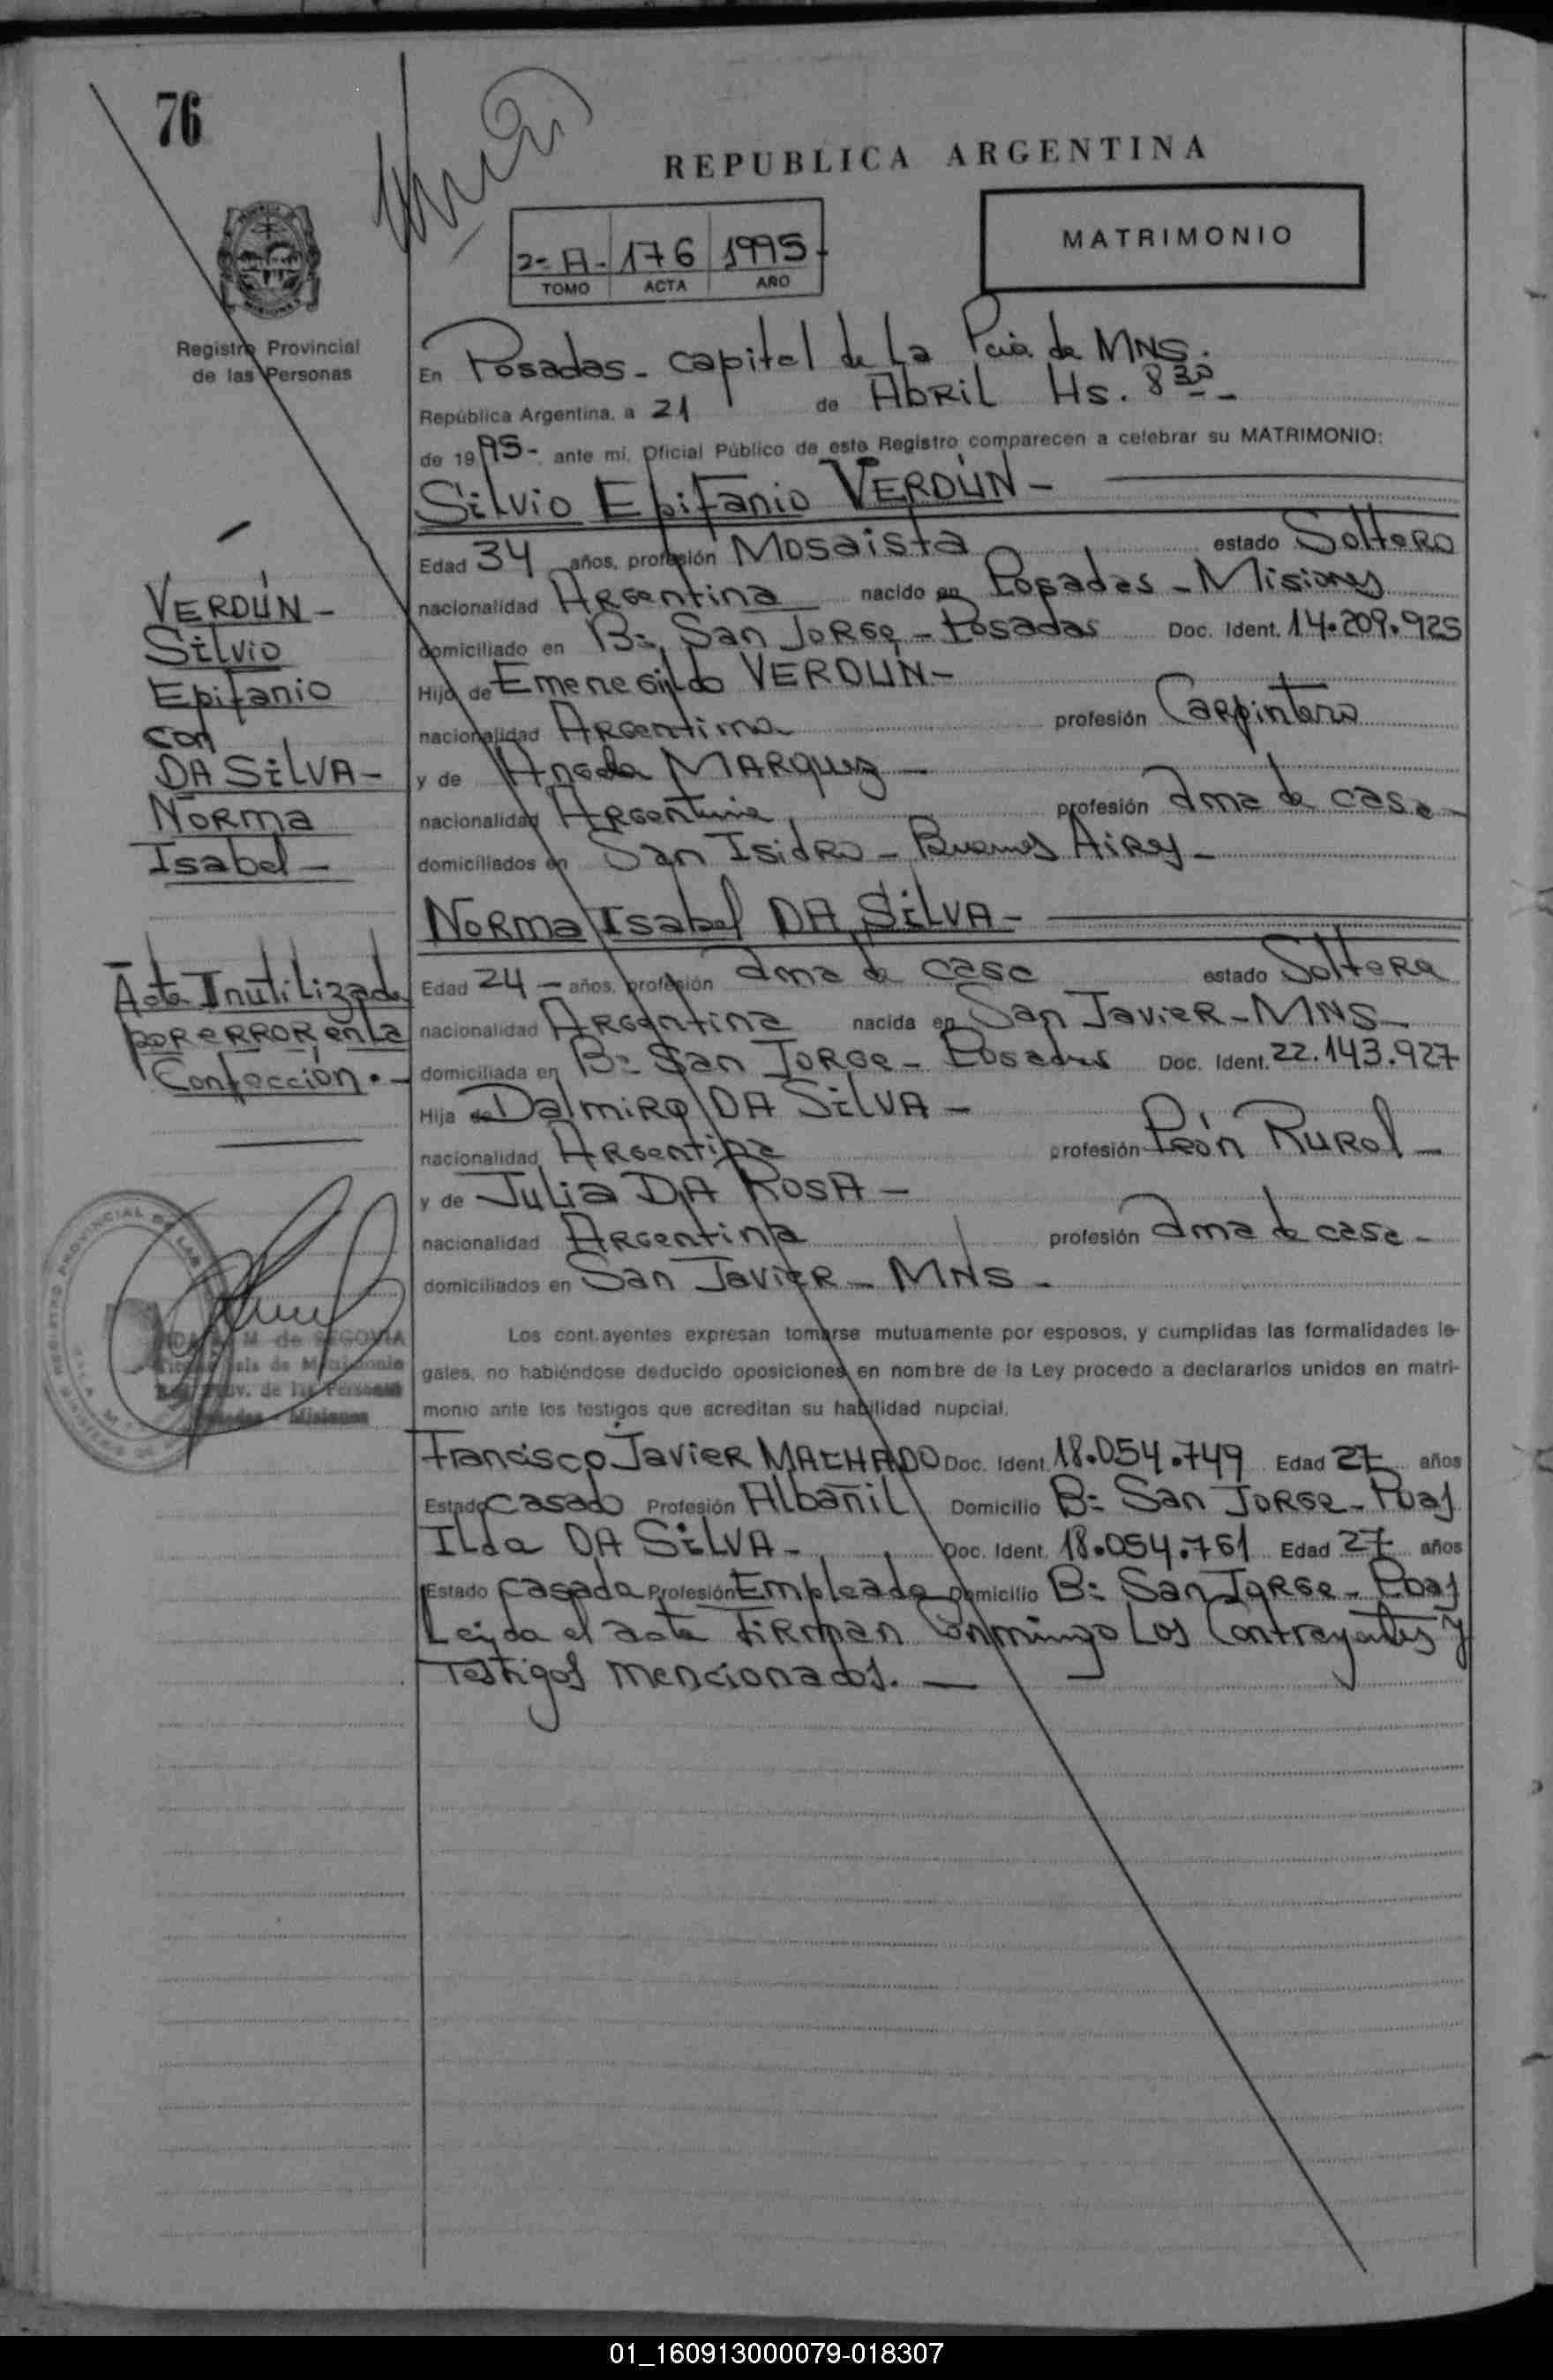 76
REPUBLICA ARGENTINA
2= A- 176 1995
TOMO ACTA AÑO
MATRIMONIO
Registro Provincial
de las Personas
En Posadas - Capital de La Pcia de MNS.
República Argentina, a 21 de Abril Hs. 8 30 -
de 1995-, ante mi, Oficial Público de este Registro comparecen a celebrar su MATRIMONIO:
Silvio Epifanio VERDÚN -
Edad 34 años, profesión Mosaista estado Soltero
nacionalidad Argentina nacido en Posadas - Misiones
domiciliado en B= San Jorge - Posadas Doc. Ident. 14.209.925
Hijo de Emenegildo VERDUN -
nacionalidad Argentina profesión Carpintero
y de Angela MARquez -
nacionalidad Argentina profesión ama de casa -
domiciliados en San Isidro - Buenos Aires -
Norma Isabel DA SILVA -
Edad 24 - años, profesión ama de casa estado Soltera
nacionalidad Argentina nacida en San Javier - MNS -
domiciliada en B= San Jorge - Posadas Doc. Ident. 22.143.927
Hija de Dalmiro DA SILVA -
nacionalidad Argentina profesión Peón Rural -
y de Julia DA ROSA -
nacionalidad Argentina profesión ama de casa -
domiciliados en San Javier - MNS -
VERDÚN -
Silvio
Epifanio
con
DA SILVA -
Norma
Isabel -
Acta Inutilizada
por error en la
Confección . -
REGISTRO PROVINCIAL DE LAS
M de SEGOVIA
de Matrimonio
Prov. de las Personas
Posadas - Misiones
Los contrayentes expresan tomarse mutuamente por esposos, y cumplidas las formalidades le-
gales, no habiéndose deducido oposiciones, en nombre de la Ley procedo a declararlos unidos en matri-
monio ante los testigos que acreditan su habilidad nupcial.
Francisco Javier MACHADO Doc. Ident. 18.054.749 Edad 27 años
Estado casado Profesión Albañil Domicilio B= San Jorge - Pdas
Ilda DA SILVA - Doc. Ident. 18.054.761 Edad 27 años
Estado casada Profesión Empleada Domicilio B= San Jorge - Pdas
Leida el acta Firman Conmingo Los Contrayentes y
Testigos mencionados. -
01_160913000079-018307